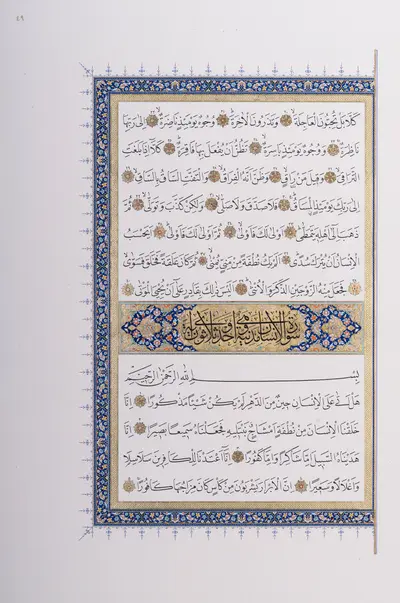 ٤٩
كَلَّا بَلْ تُحِبُّونَ الْعَاجِلَةَ وَتَذَرُونَ الْآخِرَةَ وُجُوهٌ يَوْمَئِذٍ نَاضِرَةٌ إِلَى رَبِّهَا
نَاظِرَةٌ وَوُجُوهٌ يَوْمَئِذٍ بَاسِرَةٌ تَظُنُّ أَنْ يُفْعَلَ بِهَا فَاقِرَةٌ كَلَّا إِذَا بَلَغَتِ
التَّرَاقِيَ وَقِيلَ مَنْ رَاقٍ وَظَنَّ أَنَّهُ الْفِرَاقُ وَالْتَفَّتِ السَّاقُ بِالسَّاقِ
إِلَى رَبِّكَ يَوْمَئِذٍ الْمَسَاقُ فَلَا صَدَّقَ وَلَا صَلَّى وَلَكِنْ كَذَّبَ وَتَوَلَّى ثُمَّ
ذَهَبَ إِلَى أَهْلِهِ يَتَمَطَّى أَوْلَى لَكَ فَأَوْلَى ثُمَّ أَوْلَى لَكَ فَأَوْلَى أَيَحْسَبُ
الْإِنْسَانُ أَنْ يُتْرَكَ سُدًى أَلَمْ يَكُ نُطْفَةً مِنْ مَنِيٍّ يُمْنَى ثُمَّ كَانَ عَلَقَةً فَخَلَقَ فَسَوَّى
فَجَعَلَ مِنْهُ الزَّوْجَيْنِ الذَّكَرَ وَالْأُنْثَى أَلَيْسَ ذَلِكَ بِقَادِرٍ عَلَى أَنْ يُحْيِيَ الْمَوْتَى
سورة الانسان مدنية
بِسْمِ اللهِ الرَّحْمٰنِ الرَّحِيمِ
هَلْ أَتَى عَلَى الْإِنْسَانِ حِينٌ مِنَ الدَّهْرِ لَمْ يَكُنْ شَيْئًا مَذْكُورًا إِنَّا
خَلَقْنَا الْإِنْسَانَ مِنْ نُطْفَةٍ أَمْشَاجٍ نَبْتَلِيهِ فَجَعَلْنَاهُ سَمِيعًا بَصِيرًا إِنَّا
هَدَيْنَاهُ السَّبِيلَ إِمَّا شَاكِرًا وَإِمَّا كَفُورًا إِنَّا أَعْتَدْنَا لِلْكَافِرِينَ سَلَاسِلَا
وَأَغْلَالًا وَسَعِيرًا إِنَّ الْأَبْرَارَ يَشْرَبُونَ مِنْ كَأْسٍ كَانَ مِزَاجُهَا كَافُورًا